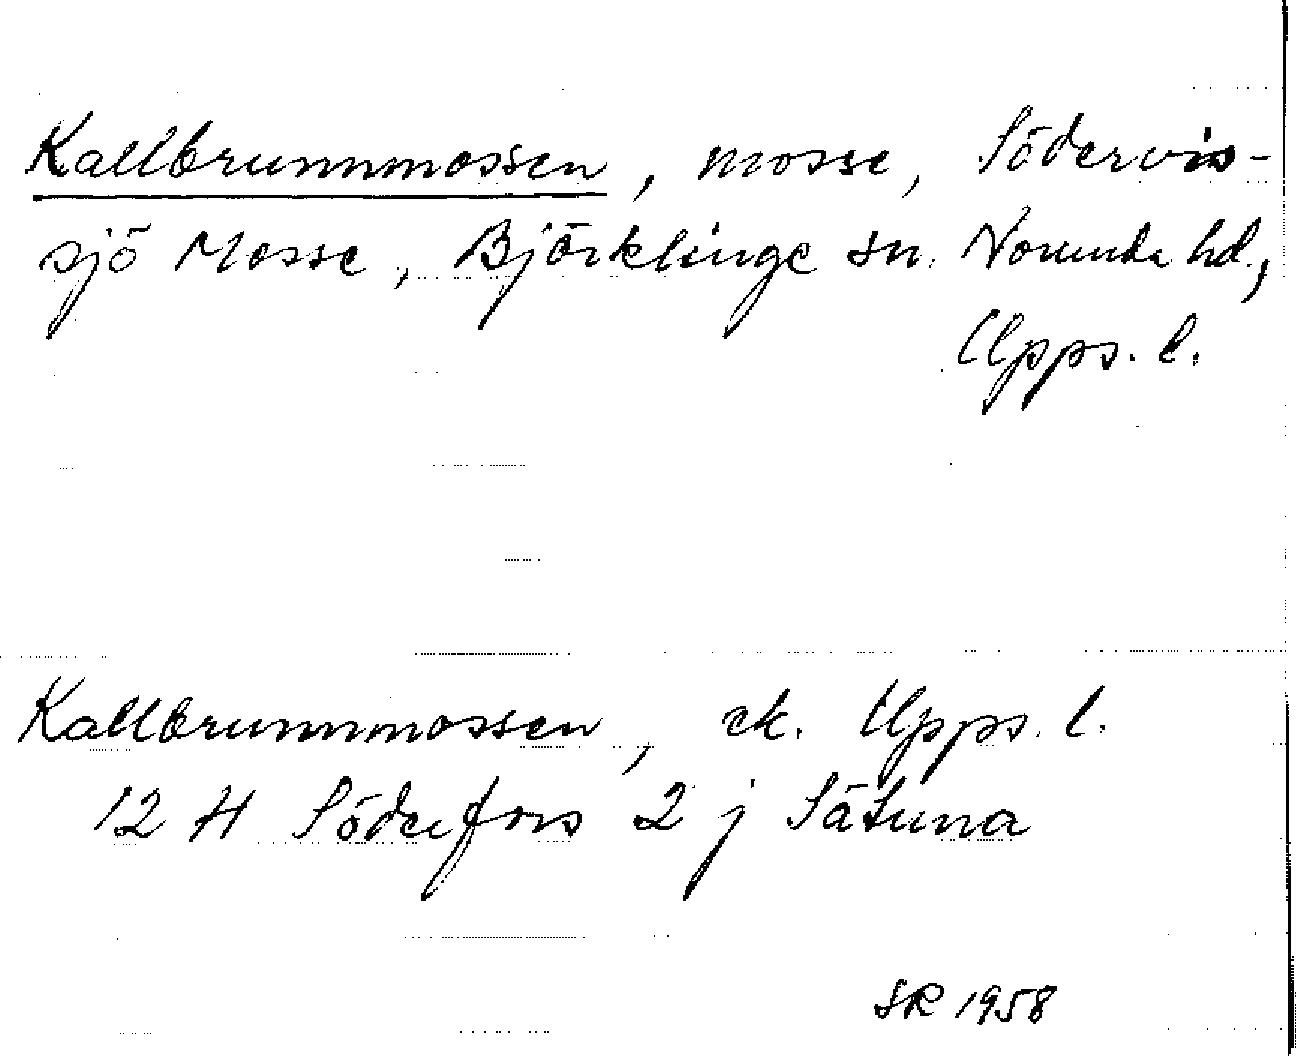 Kallbrunnmossen, mosse, Södervis-
sjö Mosse, Björklinge sn. Norunda hd.,
Upps. l.
Kallbrunnmossen, ek. Upps. l.
12 H Söderfors 2 j Sätuna
SR 1958